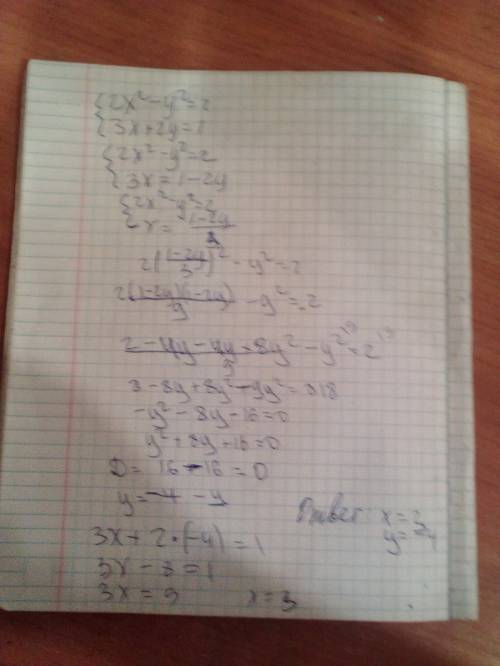 {2x²-y²=2
{3x+2y=1
{2x²-y²=2
{3x=1-2y
{2x²-y²=2
{x=(1-2y)/3
2((1-2y)/3)²-y²=2
2(1-2y)(1-2y)/9-y²=2
(2-4y-4y+8y²)/9-y²=2
-8y+8y²-9y²=
-y²-8y-16=0
y²+8y+16=0
D=16-16=0
y=-4
3x+2·(-4)=1
3x-8=1
3x=9 x=3
Ответ: x=3
y=-4